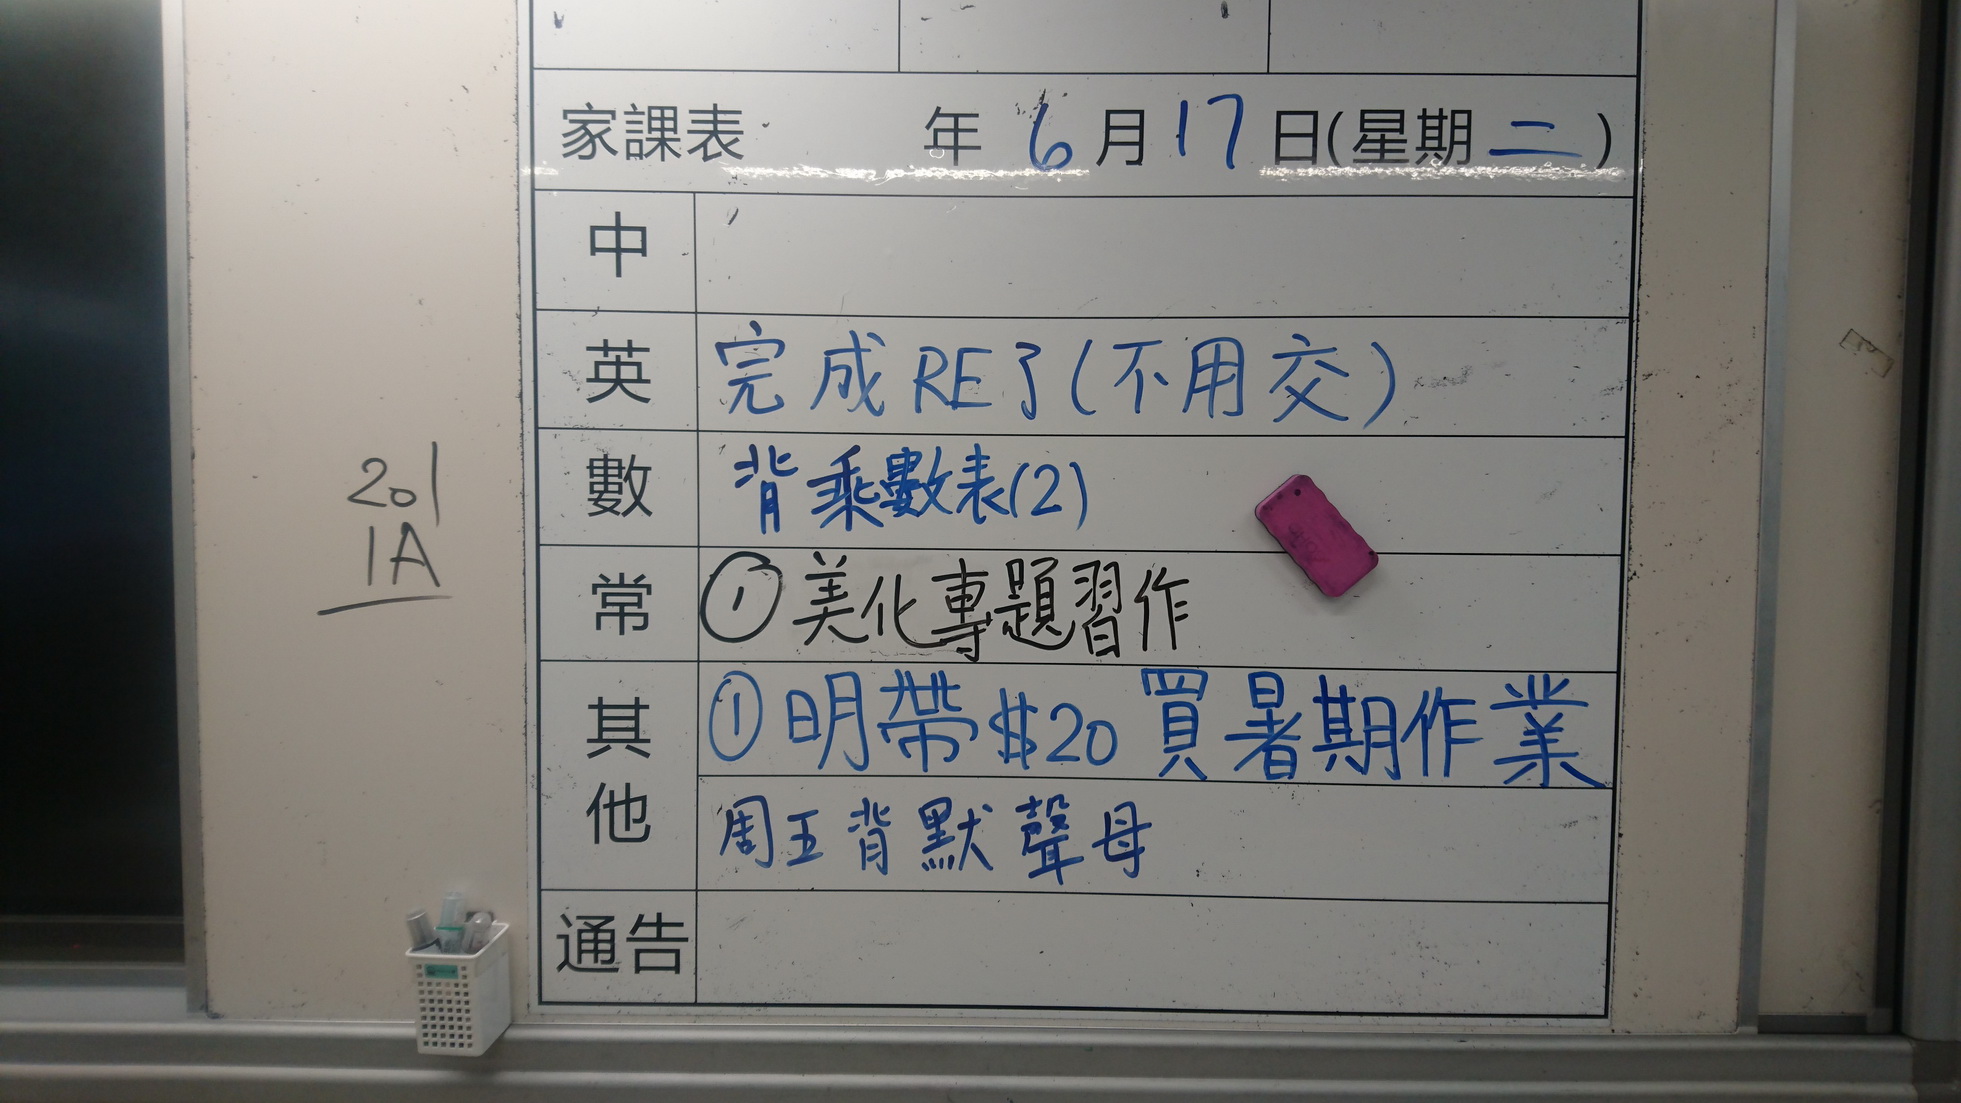 家課表 年 6月17日(星期二)
中
英 完成RE了(不用交)
數 背乘數表(2)
常 ①美化專題習作
其他 ①明帶$20買暑期作業
周五背默聲母
通告
201
1A